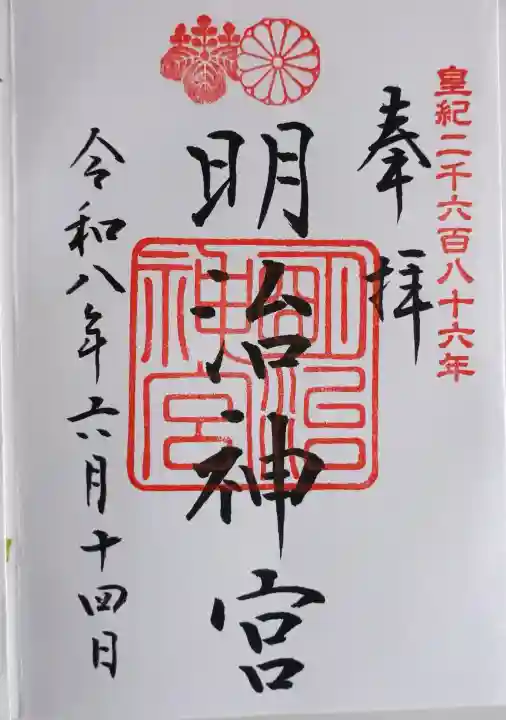 皇紀二千六百八十六年
奉拝
明治神宮
明治神宮
令和八年六月十四日